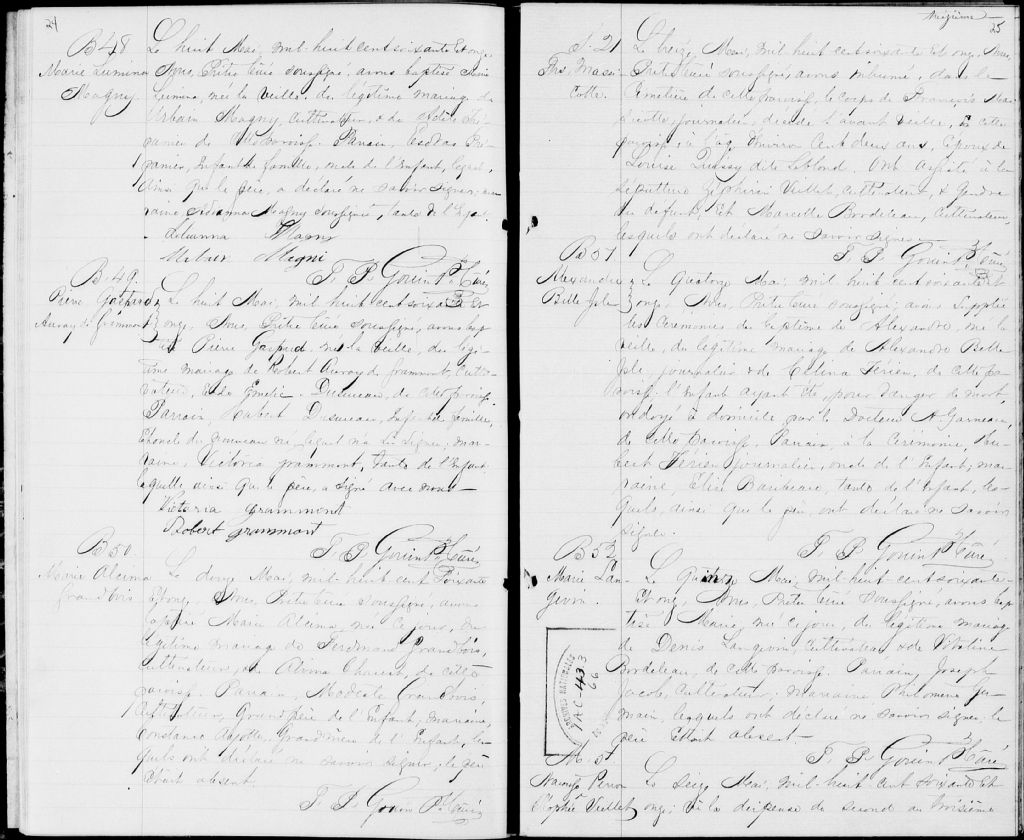 24
B 48
Marie Lumina
Magny
Le huit Mai, mil huit cent soixante et onze,
Nous, Prêtre Curé soussigné, avons baptisé Marie
Lumina, née la veille, du légitime mariage de
Urbain Magny, Cultivateur, & de
de cette Paroisse. Parrain,
Enfant de famille, oncle de l'Enfant, lequel,
ainsi que le père, a déclaré ne savoir signer, mar-
raine Magny soussignée, tante de l'Enfant.
Magny
Magni
T. P. Gouin Ptre Curé
B. 49.
Pierre Gaspard
Auray di Grammont
Le huit Mai, mil huit cent soixante et
onze, Nous, Prêtre Curé soussigné, avons bap-
tisé Pierre Gaspard, né la veille, du légi-
time mariage de Robert Auray di grammont, Culti-
vateur, & de Emélie Dusureau, de cette Paroisse.
Parrain, Hubert Dusureau, Enft de famille,
Oncle du nouveau né, lequel n'a su signer, mar-
raine, Victoria grammont, tante de l'Enfant
laquelle ainsi que le père, a signé avec nous
Victoria grammont
Robert Grammont
T. P. Gouin Ptre Curé
B 50.
Marie Alvina
Grandbois
Le douze Mai, mil huit cent soixante
et onze, Nous, Prêtre Curé soussigné, avons
baptisé Marie Alvina, née ce jour, du
légitime mariage de Ferdinand Grandbois,
Cultivateur, & de Alvina Chorest, de cette
paroisse. Parrain, Modeste Grandbois,
Cultivateur, Grand père de l'Enfant, marraine,
Constance Ayotte, Grand'Mère de l'Enfant, les-
quels ont déclaré ne savoir signer, le père
étant absent.
T. P. Gouin Ptre Curé
25
S. 21
Frs. Masi-
cotte.
Le treize Mai, mil huit cent soixante et onze, Nous,
Prêtre Curé soussigné, avons inhumé, dans le
Cimetière de cette paroisse, le corps de François Mas-
sicotte, journalier, décédé l'avant veille, en cette
paroisse, à l'âge d'environ Cent deux ans, Epoux de
Louise Quessy dite Leblond. Ont assisté à la
sépulture Zéphirin Veillet, cultivateur, & gendre
du défunt, et Marcotte Bordeleau, Cultivateur,
lesquels ont déclaré ne savoir signer.
T. P. Gouin Ptre Curé
B 51
Alexandre
Belle Isle
Le Quatorze Mai, mil huit cent soixante et
onze, Nous, Prêtre Curé soussigné, avons suppléé
les Cérémonies du baptême de Alexandre, né la
veille, du légitime mariage de Alexandre Belle
Isle, journalier & de Célina Périen, de cette Pa-
roisse, l'Enfant ayant été, pour danger de mort,
ondoyé à domicile par le Docteur A Garneau,
de cette Paroisse. Parrain, à la Cérémonie, Hu-
bert Périen journalier, oncle de l'Enfant, mar-
raine, Elise Baribeau, tante de l'Enfant, les-
quels, ainsi que le père, ont déclaré ne savoir
signer.
T. P. Gouin Ptre Curé
B 52
Marie Lan-
gevin.
Le Quinze Mai, mil huit cent soixante
et onze, Nous, Prêtre Curé soussigné, avons bap-
tisé Marie, née ce jour, du légitime mariage
de Denis Langevin, Cultivateur & de Vitaline
Bordeleau, de cette Paroisse. Parrain, Joseph
Jacob, Cultivateur; Marraine Philomène Ja-
main, lesquels ont déclaré ne savoir signer, le
père étant absent.
T. P. Gouin Ptre Curé
7AC-433
66
M. 5
Perron
Sophie Veillet
Le seize Mai, mil huit cent soixante et
onze; vu la dispense du second au troisième